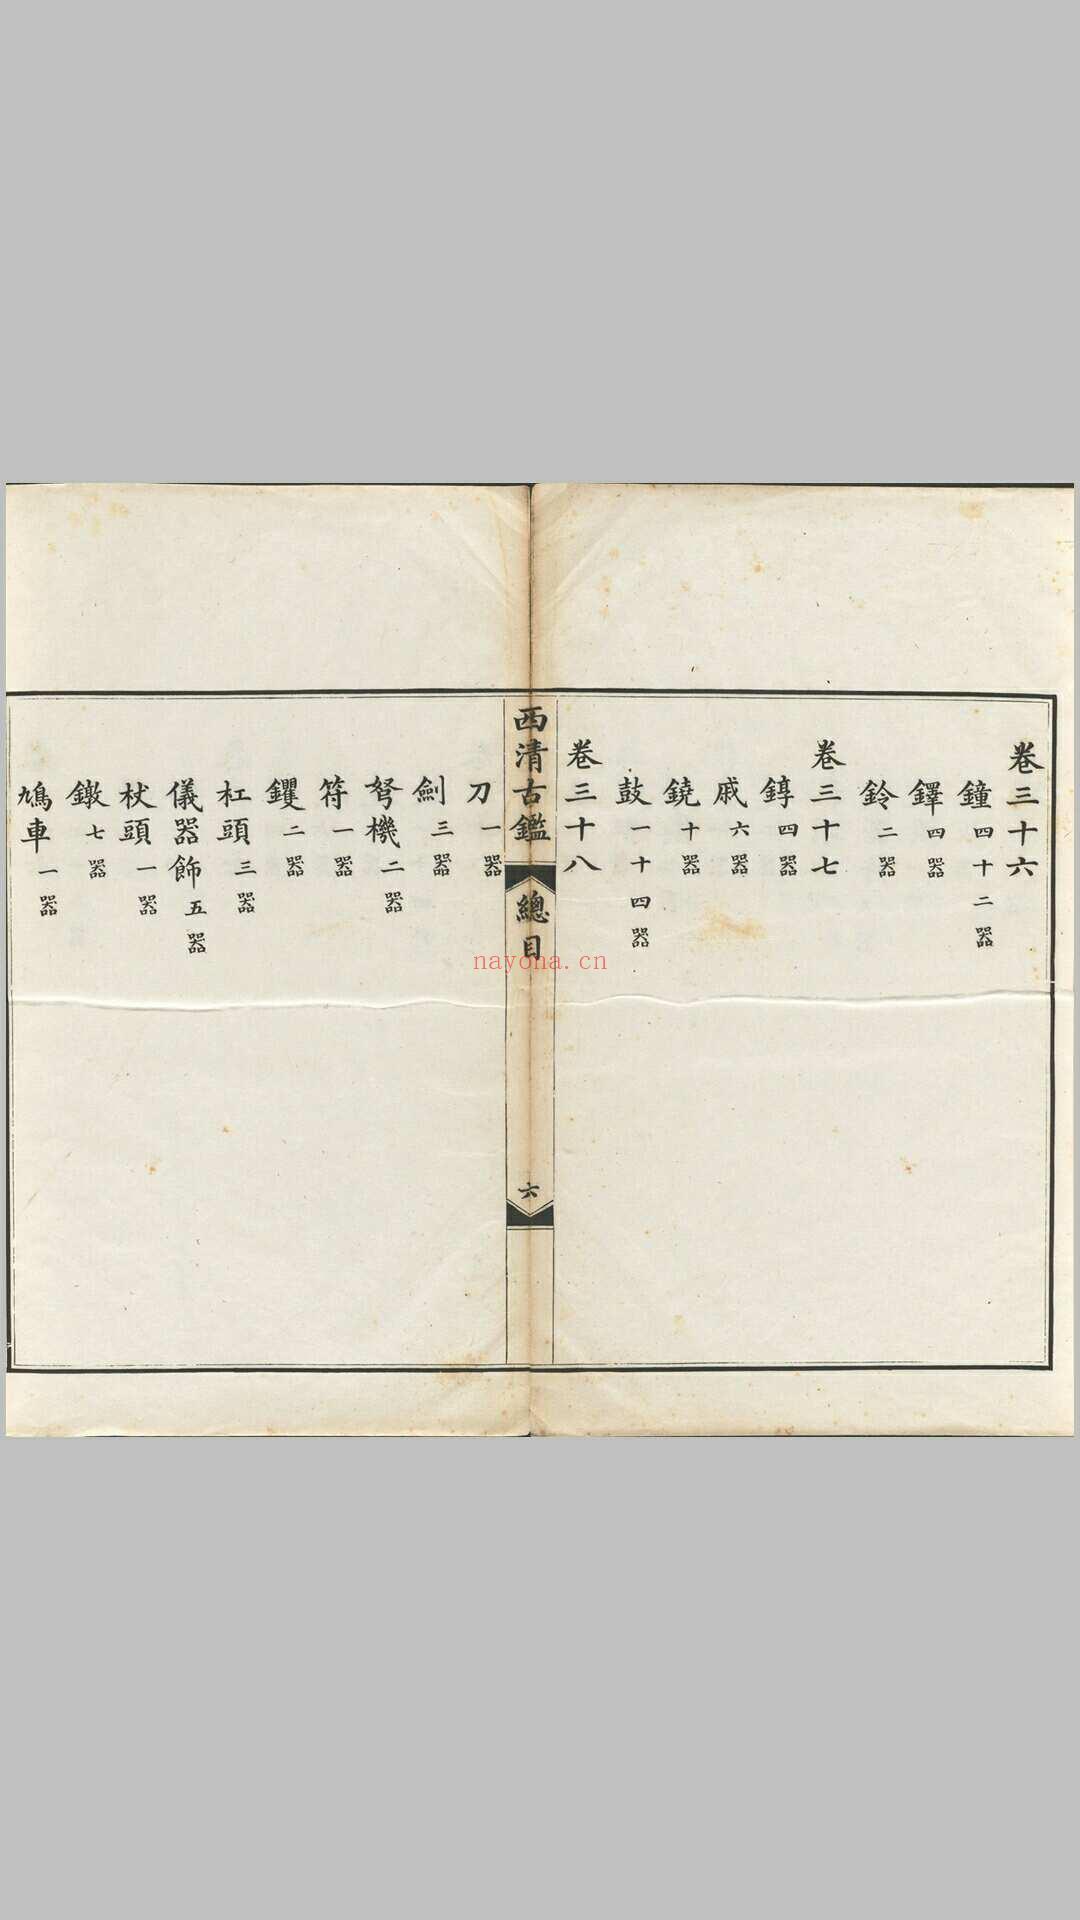 卷三十六
鐘四十二器
鐸四器
鈴二器
卷三十七
錞四器
戚六器
鐃十器
鼓一十四器
卷三十八
西清古鑑 總目 六
刀一器
劍三器
弩機二器
符一器
钁二器
杠頭三器
儀器飾五器
杖頭一器
鐓七器
鳩車一器
nayona.cn